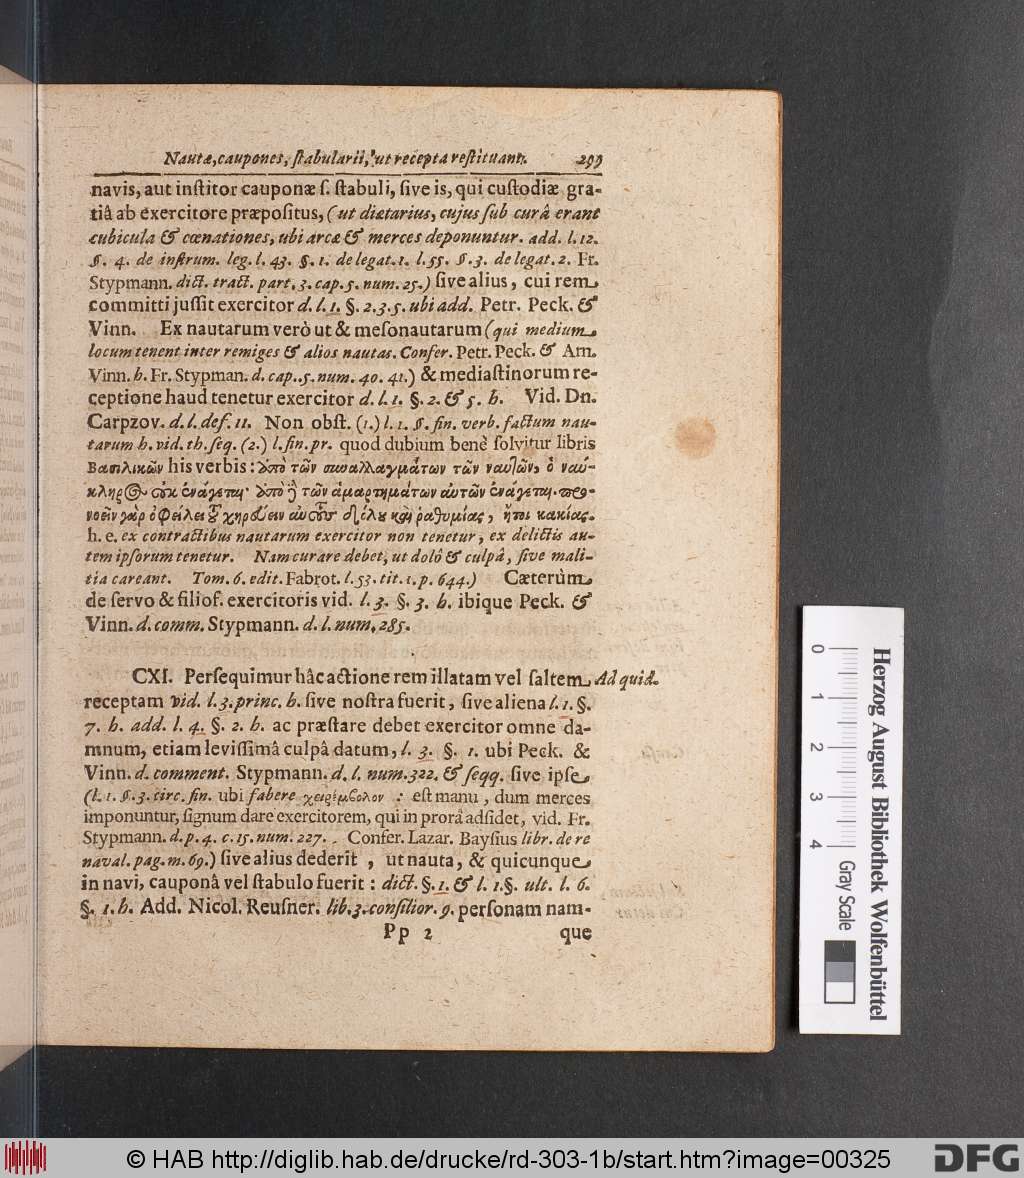 Nautæ, caupones, ſtabularii, ut recepta reſtituant. 299
navis, aut inſtitor cauponæ ſ. ſtabuli, ſive is, qui cuſtodiæ gra-
tiâ ab exercitore præpoſitus, (ut diætarius, cujus ſub curâ erant
cubicula & cœnationes, ubi arcæ & merces deponuntur. add. l. 12.
§. 4. de inſtrum. leg. l. 43. §. 1. de legat. 1. l. 55. §. 3. de legat. 2. Fr.
Stypmann. dict. tract. part. 3. cap. 5. num. 25.) ſive alius, cui rem
committi juſſit exercitor d. l. 1. §. 2. 3. 5. ubi add. Petr. Peck. &
Vinn. Ex nautarum verò ut & meſonautarum (qui medium
locum tenent inter remiges & alios nautas. Confer. Petr. Peck. & Arn.
Vinn. h. Fr. Stypman. d. cap. 5. num. 40. 41.) & mediaſtinorum re-
ceptione haud tenetur exercitor d. l. 1. §. 2. & 5. h. Vid. Dn.
Carpzov. d. l. def. 11. Non obſt. (1.) l. 1. §. fin. verb. factum nau-
tarum h. vid. th. ſeq. (2.) l. fin. pr. quod dubium benè ſolvitur libris
Βασιλικῶν his verbis: ἀπὸ τῶν συναλλαγμάτων τῶν ναυτῶν, ὁ ναύ-
κληρος οὐκ ἐνάγεται· ἀπὸ ἢ τῶν ἁμαρτημάτων αὐτῶν ἐνάγεται. προ-
νοεῖν γὰρ ὀφείλει τοῦ χηρεύειν αὐτοὺς δόλου καὶ ῥαθυμίας, ἤτοι κακίας.
h. e. ex contractibus nautarum exercitor non tenetur, ex delictis au-
tem ipſorum tenetur. Nam curare debet, ut dolô & culpâ, ſive mali-
tia careant. Tom. 6. edit. Fabrot. l. 53. tit. 1. p. 644.) Cæterùm
de ſervo & filioſ. exercitoris vid. l. 3. §. 3. h. ibique Peck. &
Vinn. d. comm. Stypmann. d. l. num. 285.
CXI. Perſequimur hâc actione rem illatam vel ſaltem Ad quid.
receptam vid. l. 3. princ. h. ſive noſtra fuerit, ſive aliena l. 1. §.
7. h. add. l. 4. §. 2. h. ac præſtare debet exercitor omne da-
mnum, etiam leviſſimâ culpâ datum, l. 3. §. 1. ubi Peck. &
Vinn. d. comment. Stypmann. d. l. num. 322. & ſeqq. ſive ipſe
(l. 1. §. 3. circ. fin. ubi fabere χειρέμβολον : eſt manu, dum merces
imponuntur, ſignum dare exercitorem, qui in prorâ adſidet, vid. Fr.
Stypmann. d. p. 4. c. 15. num. 227. Confer. Lazar. Bayſius libr. de re
naval. pag. m. 69.) ſive alius dederit, ut nauta, & quicunque
in navi, cauponâ vel ſtabulo fuerit: dict. §. 1. & l. 1. §. ult. l. 6.
§. 1. h. Add. Nicol. Reuſner. lib. 3. conſilior. 9. perſonam nam-
Pp 2 que
0 1 2 3 4
Gray Scale
Herzog August Bibliothek Wolfenbüttel
© HAB http://diglib.hab.de/drucke/rd-303-1b/start.htm?image=00325
DFG